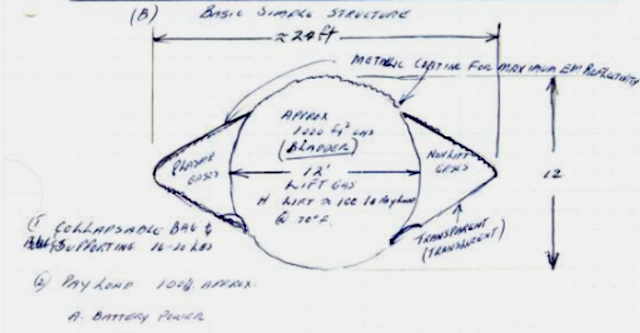 (B) BASIC SIMPLE STRUCTURE
≈ 24 ft
METALIC COATING FOR MAXIMUM EM. REFLECTIVITY
APPROX
1000 ft³ GAS
(BLADDER)
12'
LIFT GAS
H LIFT ≈ 100 lb PAYLOAD
@ 70°F.
GASES
NON LIFT
GASES
12
TRANSPARENT
(TRANSLUCENT)
(1 COLLAPSABLE BAG &
SUPPORTING 16-20 LBS
(2) PAY LOAD 100 APPROX.
A. BATTERY POWER